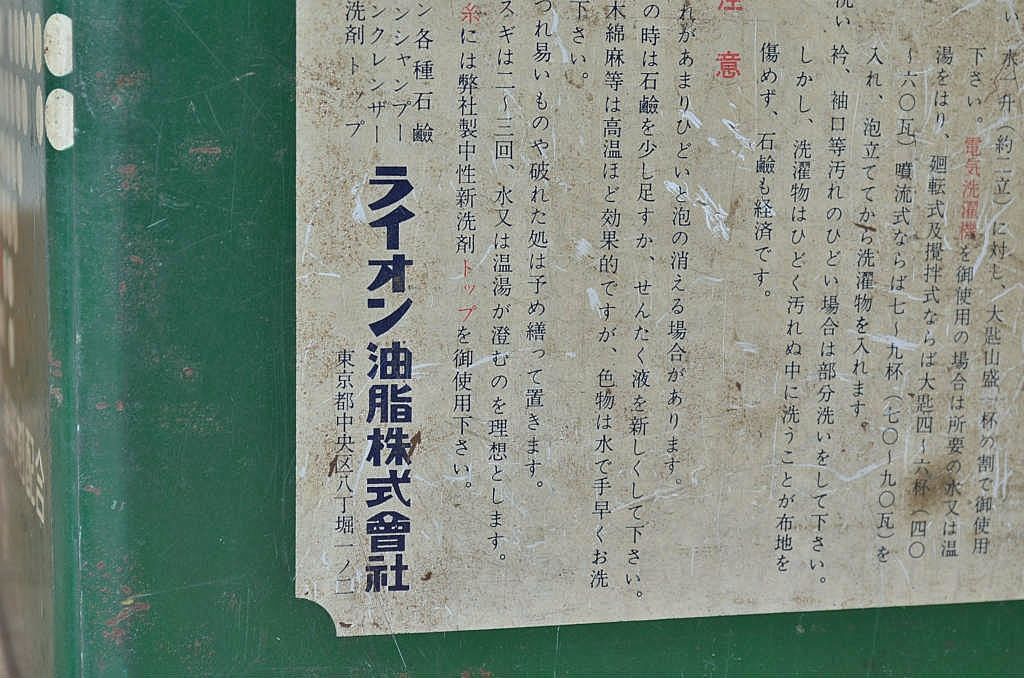 い
水一升（約二立）に対し、大匙山盛一杯の割で御使用
下さい。電気洗濯機を御使用の場合は所要の水又は温
湯をはり、廻転式及攪拌式ならば大匙四～六杯（四〇
～六〇瓦）噴流式ならば七～九杯（七〇～九〇瓦）を
入れ、泡立ててから洗濯物を入れます。
衿、袖口等汚れのひどい場合は部分洗いをして下さい。
洗い
しかし、洗濯物はひどく汚れぬ中に洗うことが布地を
傷めず、石鹼も経済です。
注意
れがあまりひどいと泡の消える場合があります。
の時は石鹼を少し足すか、せんたく液を新しくして下さい。
木綿麻等は高温ほど効果的ですが、色物は水で手早くお洗
下さい。
つれ易いものや破れた処は予め繕って置きます。
スギは二～三回、水又は温湯が澄むのを理想とします。
糸には弊社製中性新洗剤トップを御使用下さい。
ン各種石鹼
ンシャンプー
ンクレンザー
洗剤トップ
ライオン油脂株式會社
東京都中央区八丁堀一ノ二